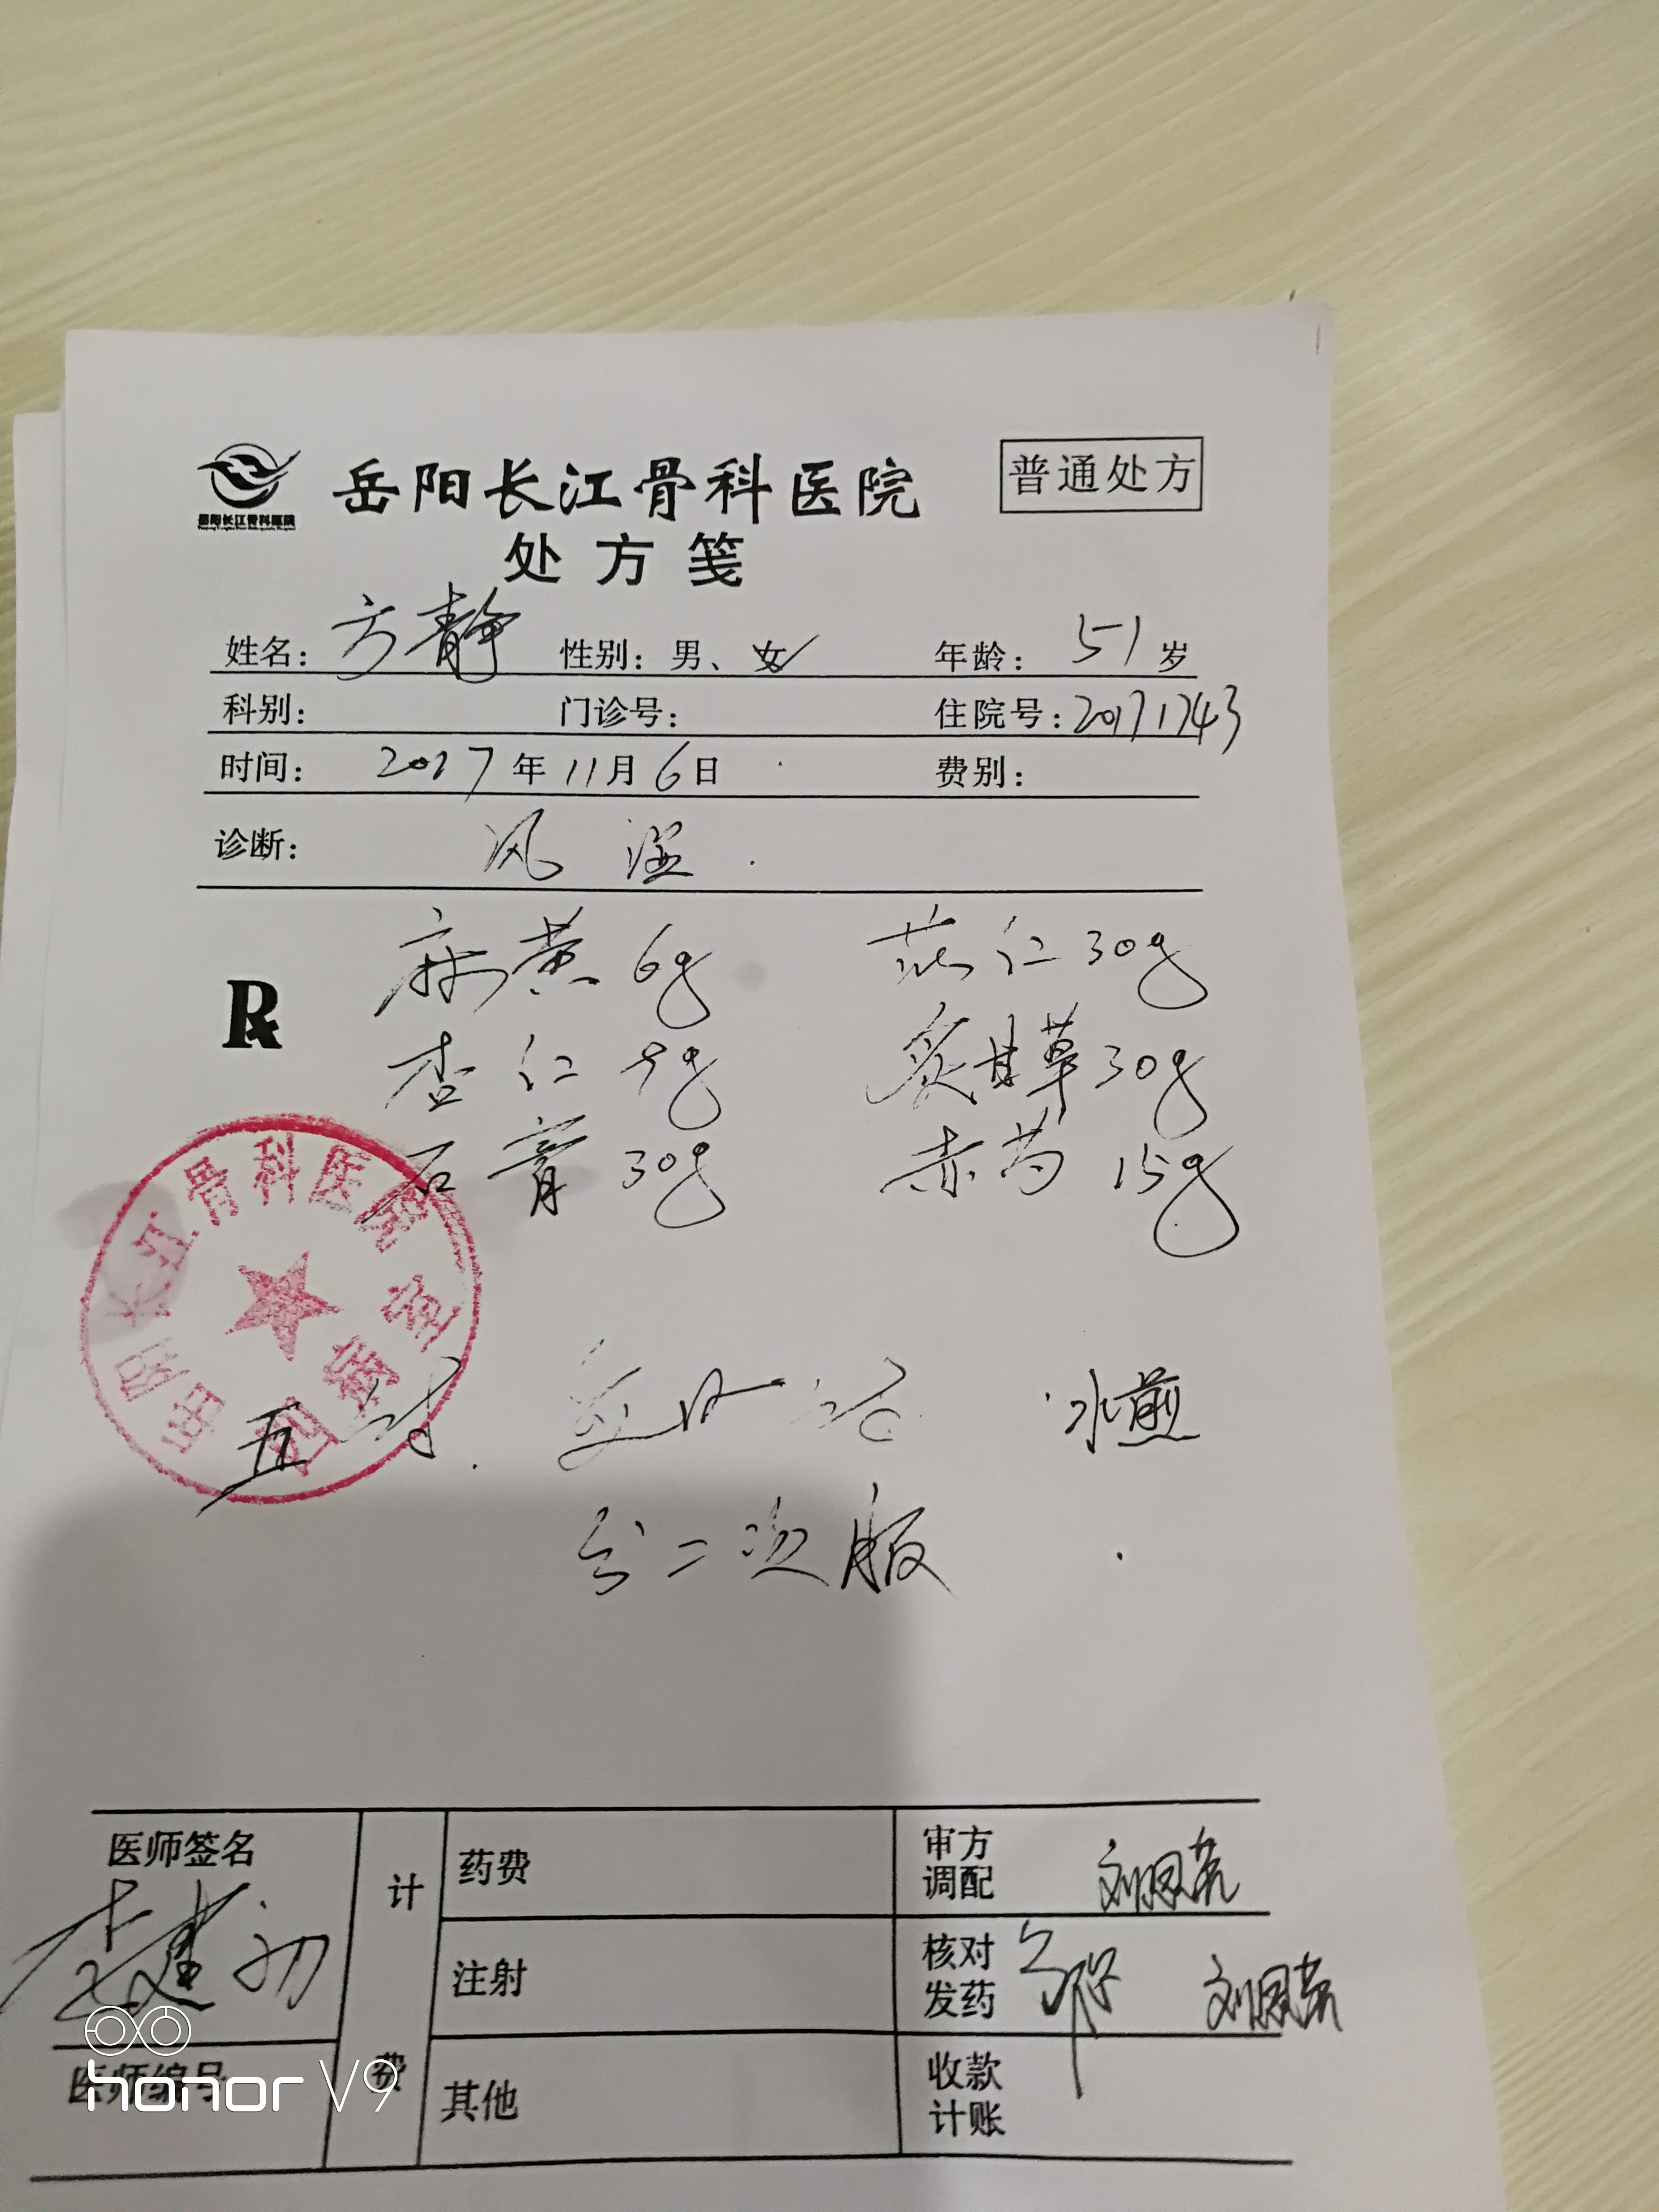 岳阳长江骨科医院
普通处方
岳阳长江骨科医院
处方笺
姓名: 方静 性别: 男、女 年龄: 51 岁
科别: 门诊号: 住院号: 20171743
时间: 2017 年 11 月 6 日 费别:
诊断: 风湿
麻黄 6g 苡仁 30g
R
杏仁 9g 炙甘草 30g
石膏 30g 赤芍 15g
岳阳长江骨科医院
五付 每日一付 水煎
分二次服
医师签名 计 药费 审方
调配
注射 核对
发药
医师编号 费 其他 收款
计账
honor V9